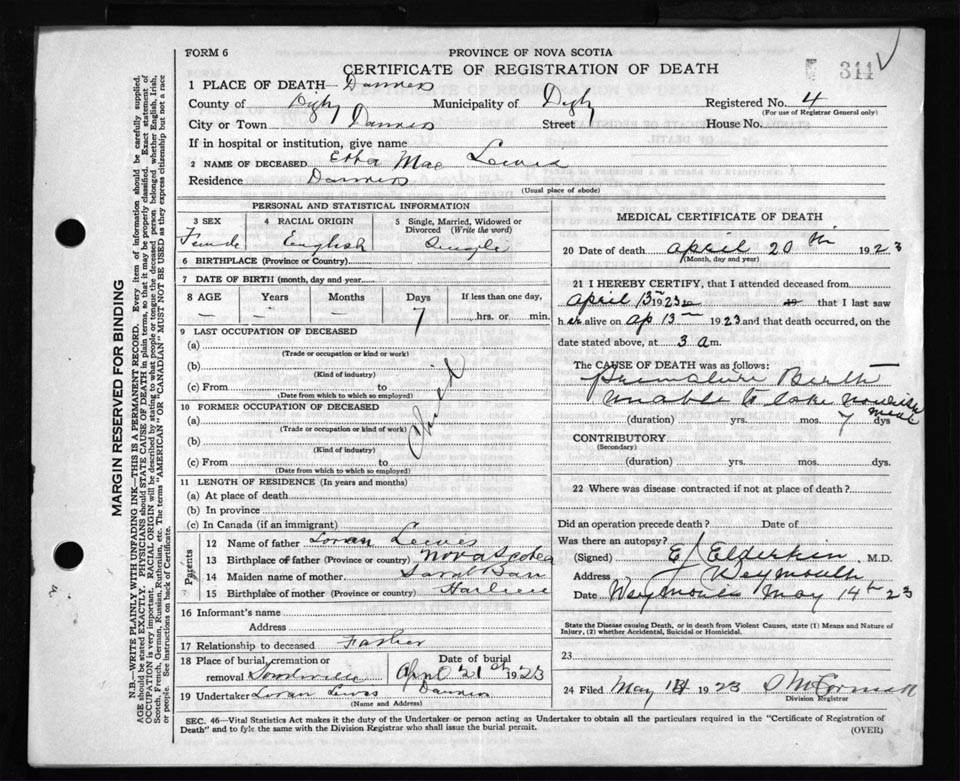 FORM 6
PROVINCE OF NOVA SCOTIA
CERTIFICATE OF REGISTRATION OF DEATH
311
1 PLACE OF DEATH—Danvers
County of Digby Municipality of Digby Registered No. 4
(For use of Registrar General only)
City or Town Danvers Street House No.
If in hospital or institution, give name
2 NAME OF DECEASED Etta Mae Lewis
Residence Danvers
(Usual place of abode)
MARGIN RESERVED FOR BINDING
N.B.—WRITE PLAINLY WITH UNFADING INK—THIS IS A PERMANENT RECORD. Every item of information should be carefully supplied.
AGE should be stated EXACTLY. PHYSICIANS should STATE CAUSE OF DEATH in plain terms, so that it may be properly classified. Exact statement of
OCCUPATION is very important. RACIAL ORIGIN will be described by stating to what people or tongue the deceased person belonged whether English, Irish,
Scotch, French, German, Russian, Ruthenian, etc. The terms "AMERICAN" OR "CANADIAN" MUST NOT BE USED as they express citizenship but not a race
or people. See instructions on back of Certificate.
PERSONAL AND STATISTICAL INFORMATION
3 SEX 4 RACIAL ORIGIN 5 Single, Married, Widowed or
Divorced (Write the word)
Female English Single
6 BIRTHPLACE (Province or Country)
7 DATE OF BIRTH (month, day and year)
8 AGE Years Months Days If less than one day,
— — — 7 hrs. or min.
9 LAST OCCUPATION OF DECEASED
(a)
(Trade or occupation or kind or work)
(b)
(Kind of industry)
(c) From to
(Date from which to which so employed)
Child
10 FORMER OCCUPATION OF DECEASED
(a)
(Trade or occupation or kind of work)
(b)
(Kind of industry)
(c) From to
(Date from which to which so employed)
11 LENGTH OF RESIDENCE (In years and months)
(a) At place of death
(b) In province
(c) In Canada (if an immigrant)
Parents
12 Name of father Loran Lewis
13 Birthplace of father (Province or country) Nova Scotia
14 Maiden name of mother Sarah
15 Birthplace of mother (Province or country)
16 Informant's name
Address
17 Relationship to deceased Father
18 Place of burial, cremation or Date of burial
removal April 21st 1923
19 Undertaker Loran Lewis Danvers
(Name and Address)
MEDICAL CERTIFICATE OF DEATH
20 Date of death April 20th 1923
(Month, day and year)
21 I HEREBY CERTIFY, that I attended deceased from
April 13th 1923 to 19 that I last saw
her alive on Ap 13th 1923 and that death occurred, on the
date stated above, at 3 a m.
The CAUSE OF DEATH was as follows:
Premature Birth
unable to take nourishment
(duration) yrs. mos. 7 dys
CONTRIBUTORY
(Secondary)
(duration) yrs. mos. dys.
22 Where was disease contracted if not at place of death?
Did an operation precede death? Date of
Was there an autopsy?
(Signed) E J Elderkin M.D.
Address Weymouth
Date Weymouth May 14th 23
State the Disease causing Death, or in death from Violent Causes, state (1) Means and Nature of
Injury, (2) whether Accidental, Suicidal or Homicidal.
23
24 Filed May 1923 McCormack
Division Registrar
SEC. 46—Vital Statistics Act makes it the duty of the Undertaker or person acting as Undertaker to obtain all the particulars required in the "Certificate of Registration of
Death" and to fyle the same with the Division Registrar who shall issue the burial permit.
(OVER)